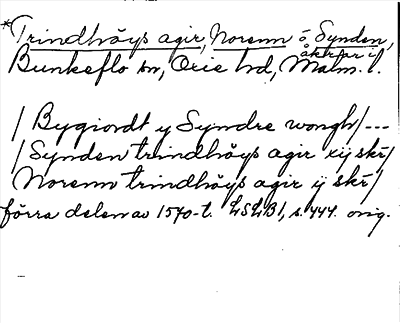 *Trindhöys agir, Norenn ö Synden,
åkrar i
Bunkeflo sn, Oxie hd, Malm. l.
/ Bygiordt y Syndre wongh/---
/ Synden trindhöys agir xij skr/
Norenn trindhöys agir ij skr/
förra delen av 1570-t. LSLB1, s. 444. orig.